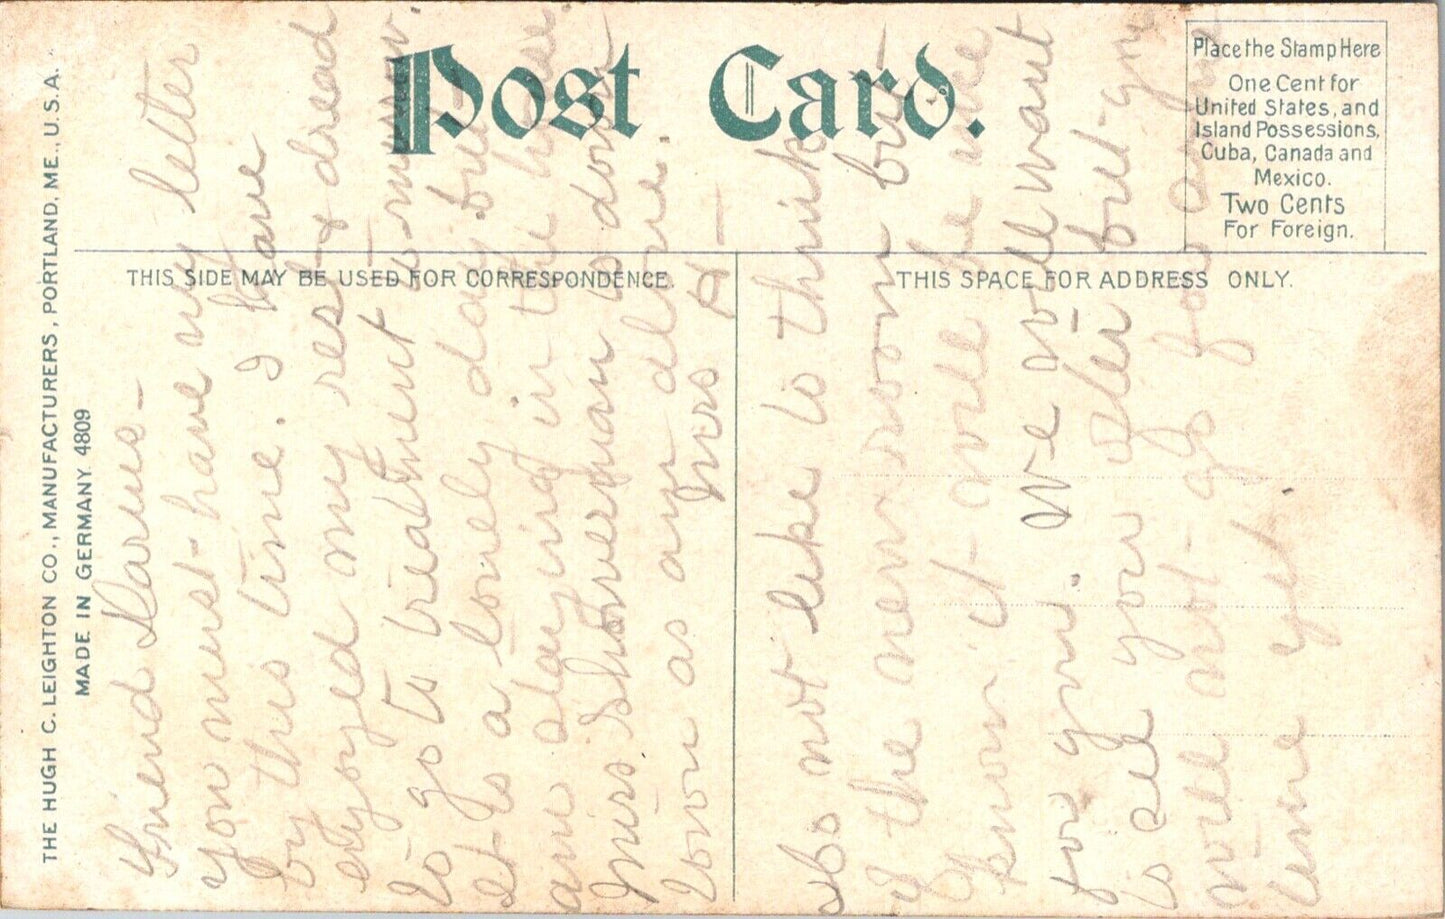 Post Card.
Place the Stamp Here
One Cent for
United States, and
Island Possessions,
Cuba, Canada and
Mexico.
Two Cents
For Foreign.
THIS SIDE MAY BE USED FOR CORRESPONDENCE.
THIS SPACE FOR ADDRESS ONLY.
THE HUGH C. LEIGHTON CO., MANUFACTURERS, PORTLAND, ME., U.S.A.
MADE IN GERMANY 4809
Friend Darius-
you must have my letter
by this time. I have
enjoyed my rest & dread
to go to treatment to-morrow.
It is a lovely day but I
am staying in the house
Mrs. Showerman is down
town as am alone.
Mrs H-
Do not like to think
of the new room but
know it will be nice
for you. We will want
to see you after but you
will not go for some
time yet